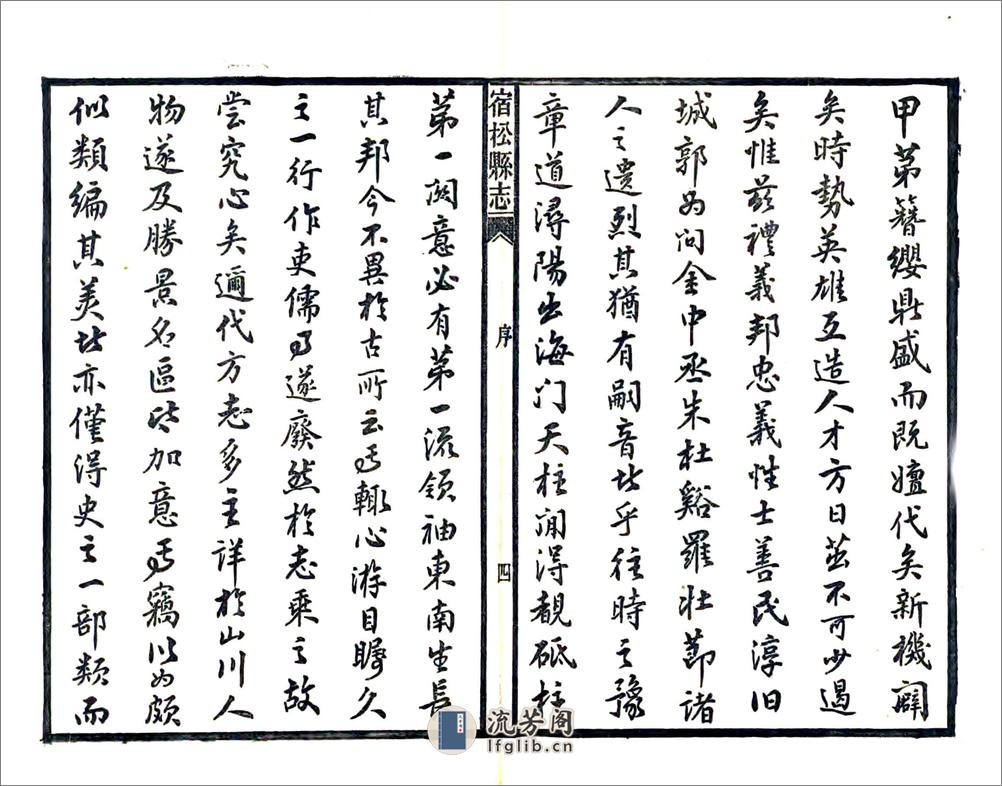 甲第簪纓鼎盛而既嬗代矣新機闢
矣時勢英雄互造人才方日茁不可少遏
矣惟茲禮義邦忠義性士善民淳旧
城郭如问金中丞朱杜谿羅壯節诸
人之遺烈其猶有嗣音者乎往時之豫
章道潯陽出海门天柱间得覩砥柱
宿松縣志
序
四
第一關意必有第一流领袖東南生長
其邦今不異於古所云焉輒心游目矚久
之一行作吏儒的遂廢然於志乘之故
尝究心矣邇代方志多主詳於山川人
物遂及勝景名區皆加意焉竊以为頗
似類编其美者亦僅得史之一部類而
流芳阁
lfglib.cn